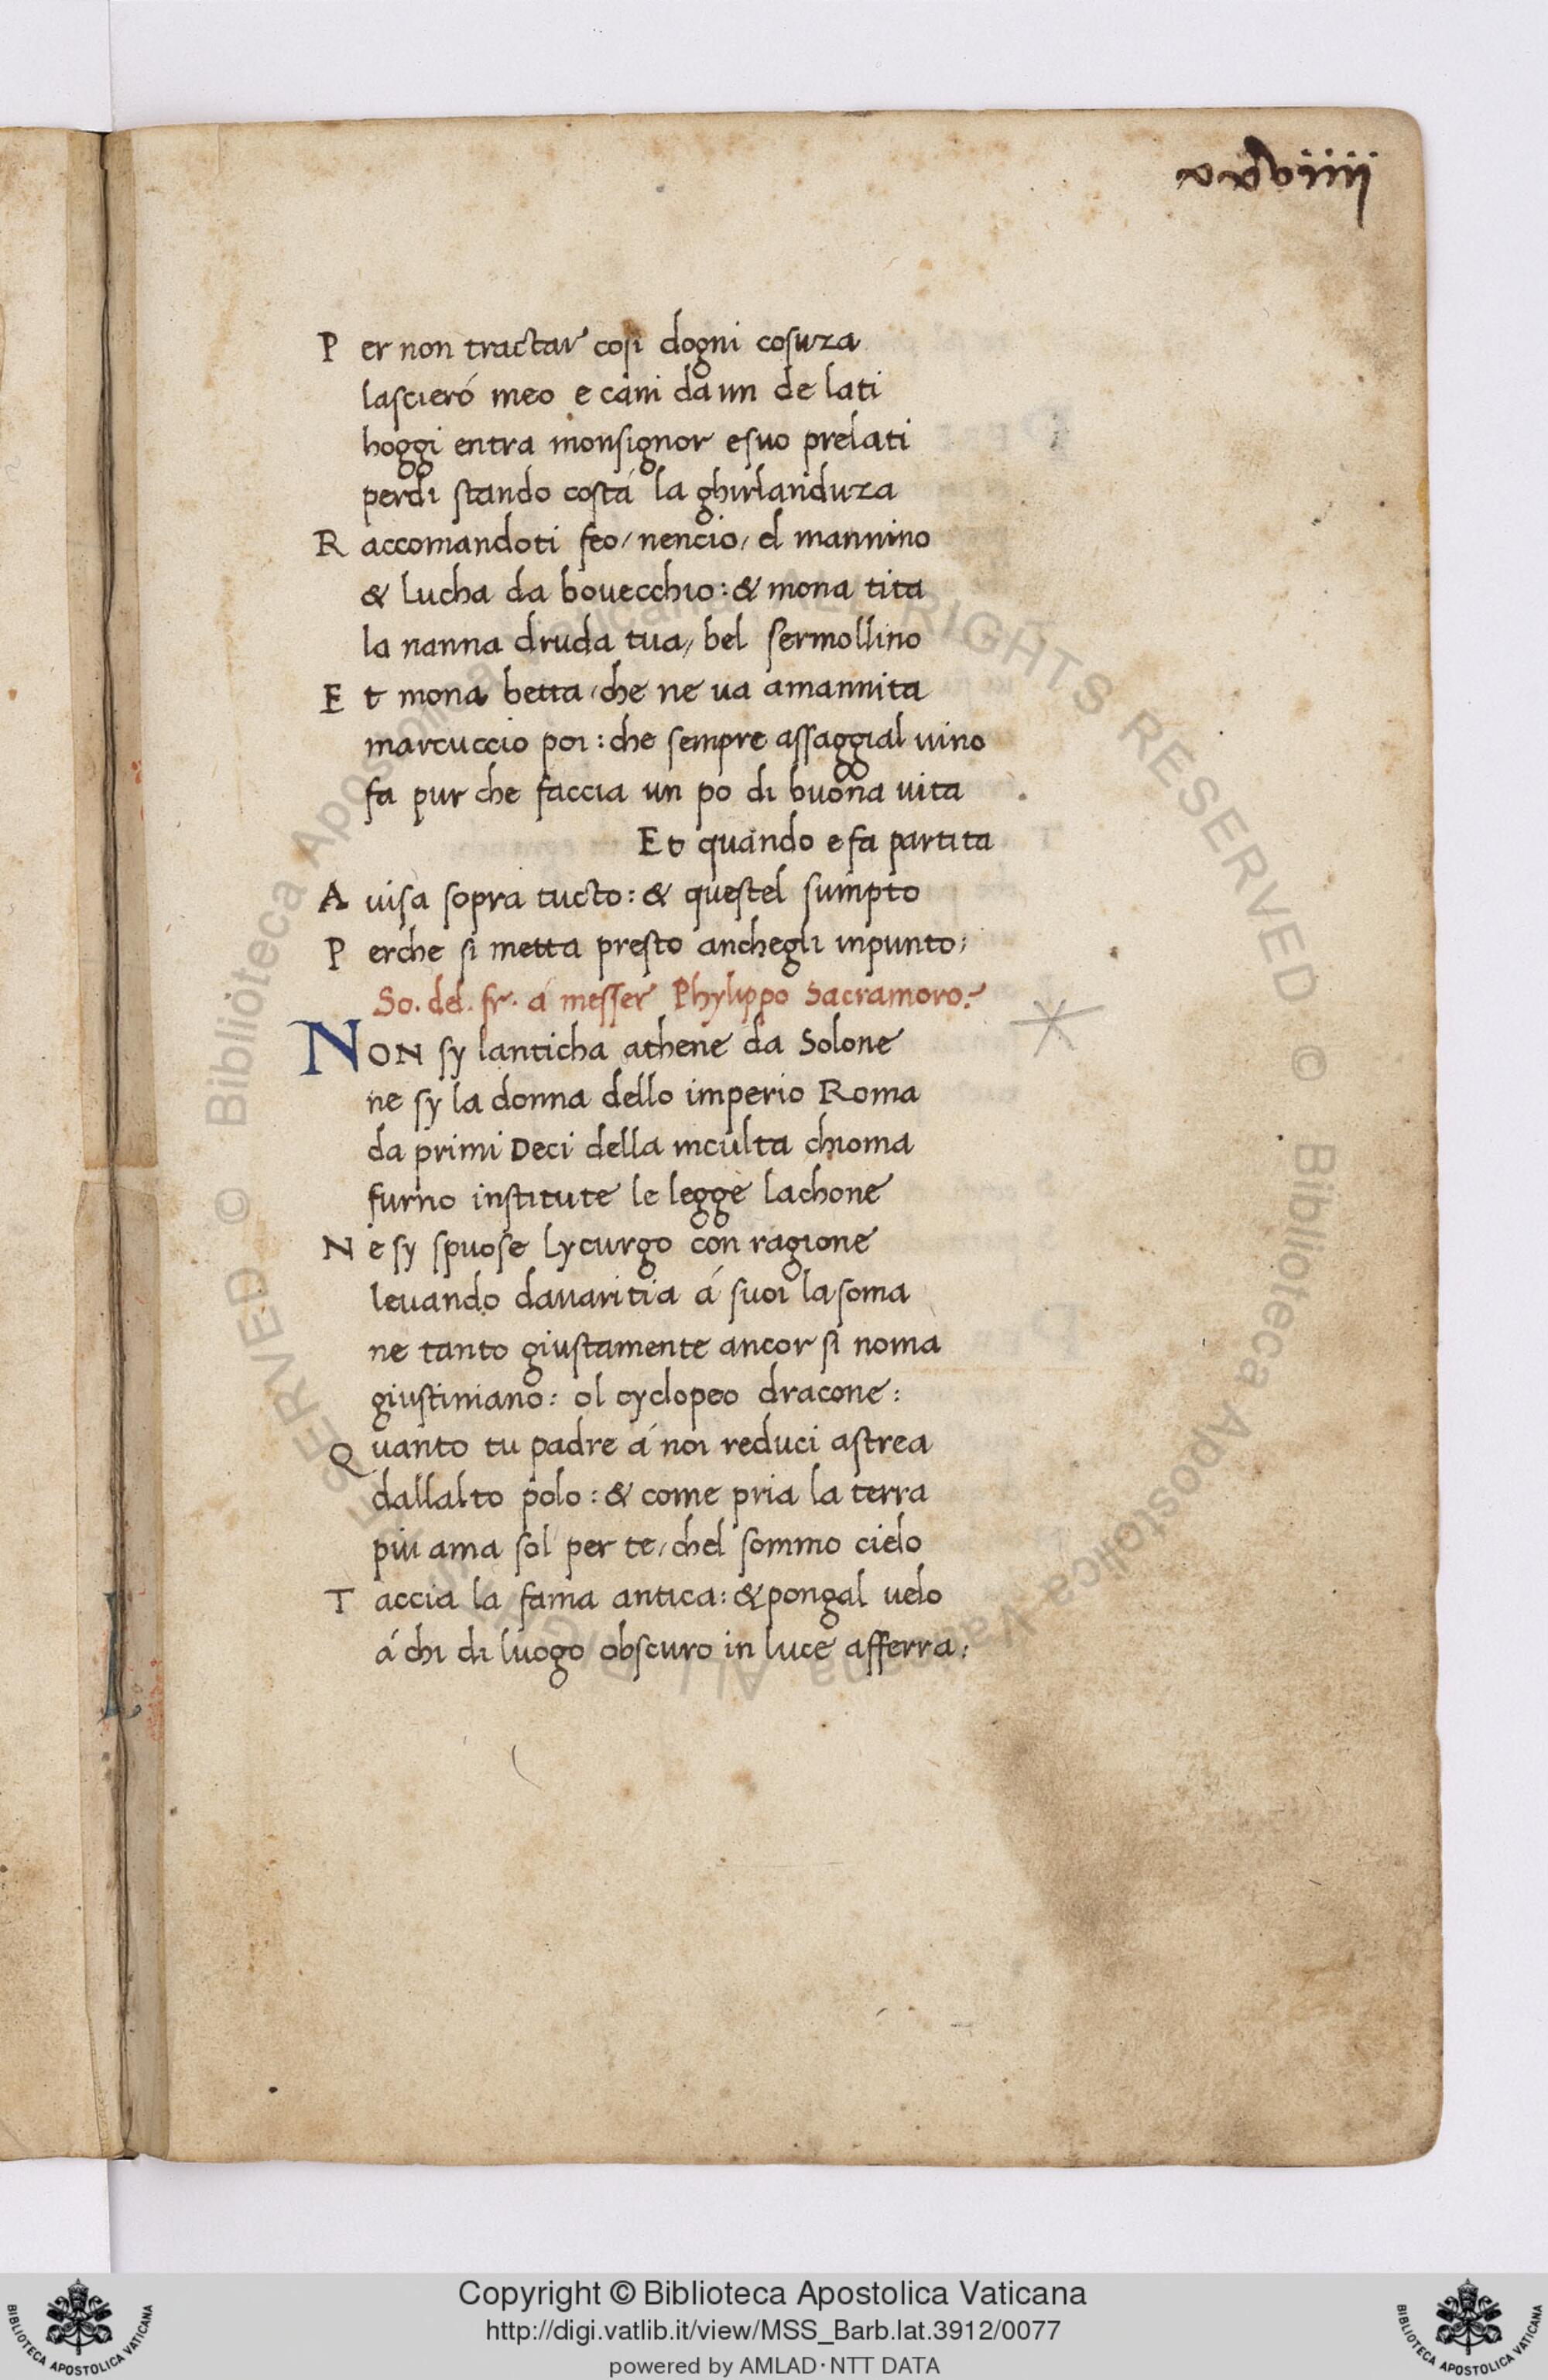 xxviiii
Per non tractar cosi dogni cosuza
lascieró meo e cani da un de lati
hoggi entra monsignor e suo prelati
perdi stando costá la ghirlanduza
Raccomandoti feo / nencio / el mannino
& lucha da bovecchio : & mona tita
la nanna druda tua // bel sermollino
Et mona betta / che ne va amannita
marcuccio poi : che sempre assaggial vino
fa pur che faccia un po di buona vita
Et quando e fa partita
Avisa sopra tucto : & questel sumpto
Perche si metta presto anchegli inpunto ;
So. del. fr. á messer Phylippo Sacramoro.
NON sy lanticha athene da Solone
ne sy la donna dello imperio Roma
da primi Deci della inculta chioma
furno institute le legge lachone
Ne sy spuose Lycurgo con ragione
levando davaritia á suoi la soma
ne tanto giustamente ancor si noma
giustiniano : ol cyclopeo dracone :
Quanto tu padre á noi reduci astrea
dallalto polo : & come pria la terra
piu ama sol per te / chel sommo cielo
Taccia la fama antica : & pongal velo
á chi di luogo obscuro in luce afferra ;
© Biblioteca Apostolica Vaticana ALL RIGHTS RESERVED © Biblioteca Apostolica Vaticana ALL RIGHTS RESERVED
Copyright © Biblioteca Apostolica Vaticana
http://digi.vatlib.it/view/MSS_Barb.lat.3912/0077
powered by AMLAD·NTT DATA
BIBLIOTECA APOSTOLICA VATICANA
BIBLIOTECA APOSTOLICA VATICANA